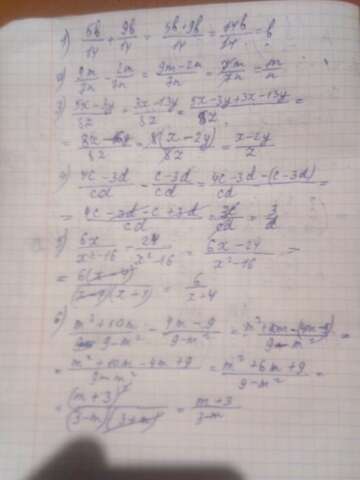 1) 5b/14 + 9b/14 = 5b+9b/14 = 14b/14 = b
2) 9m/7n - 2m/7n = 9m-2m/7n = 7m/7n = m/n
3) 5x-3y/8z + 3x-13y/8z = 5x-3y+3x-13y/8z =
= 8x-16y/8z = 8(x-2y)/8z = x-2y/z
4) 4c-3d/cd - c-3d/cd = 4c-3d-(c-3d)/cd =
= 4c-3d-c+3d/cd = 3c/cd = 3/d
5) 6x/x²-16 - 24/x²-16 = 6x-24/x²-16 =
= 6(x-4)/(x-4)(x+4) = 6/x+4
6) m²+10m/9-m² - 4m-9/9-m² = m²+10m-(4m-9)/9-m² =
= m²+10m-4m+9/9-m² = m²+6m+9/9-m² =
= (m+3)²/(3-m)(3+m) = m+3/3-m